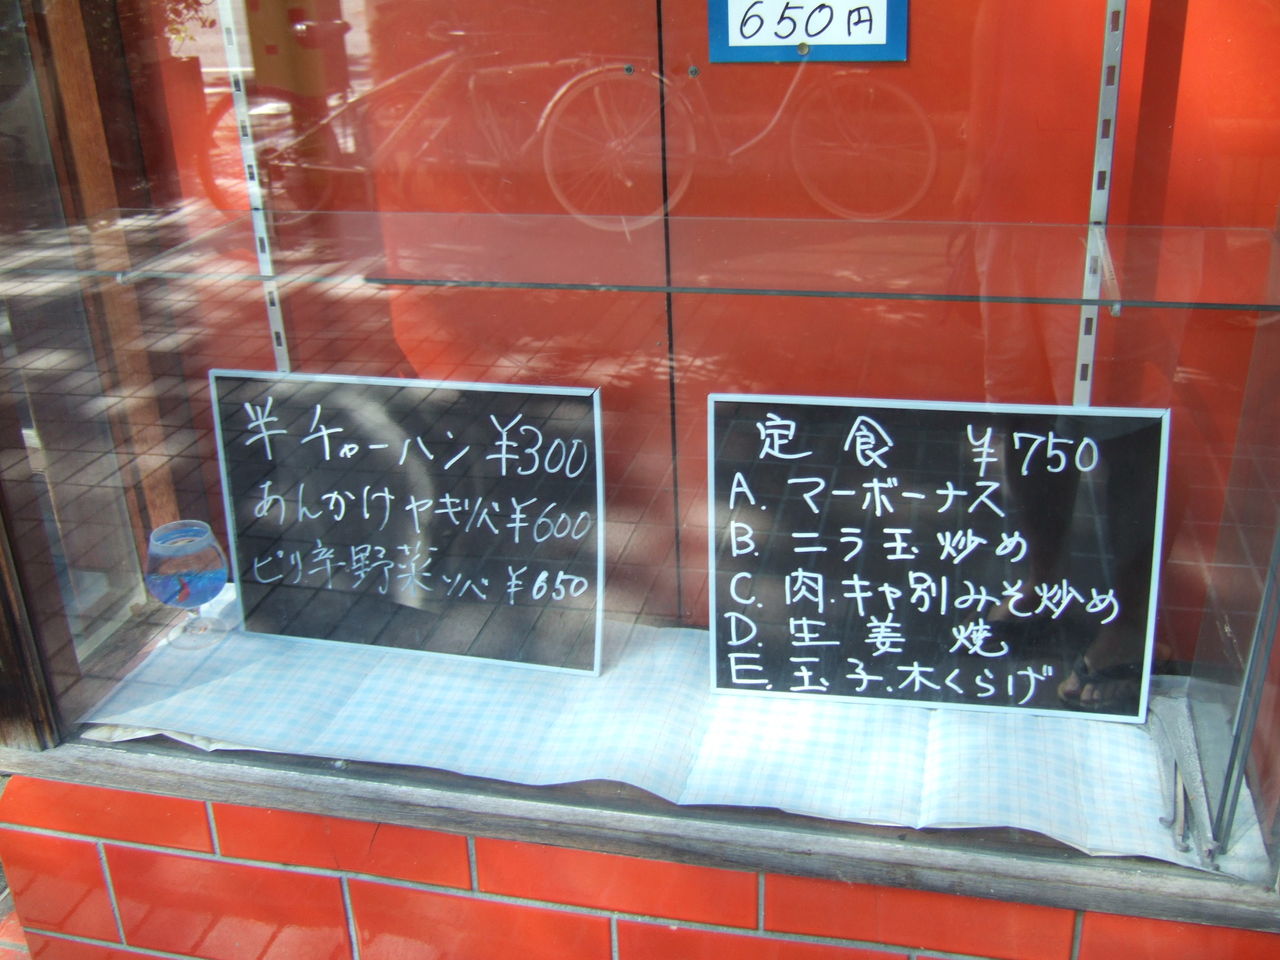 650円
半チャーハン ¥300
あんかけヤキソバ ¥600
ピリ辛野菜ソバ ¥650
定食 ¥750
A. マーボーナス
B. ニラ玉炒め
C. 肉.キャ別みそ炒め
D. 生姜焼
E. 玉子.木くらげ